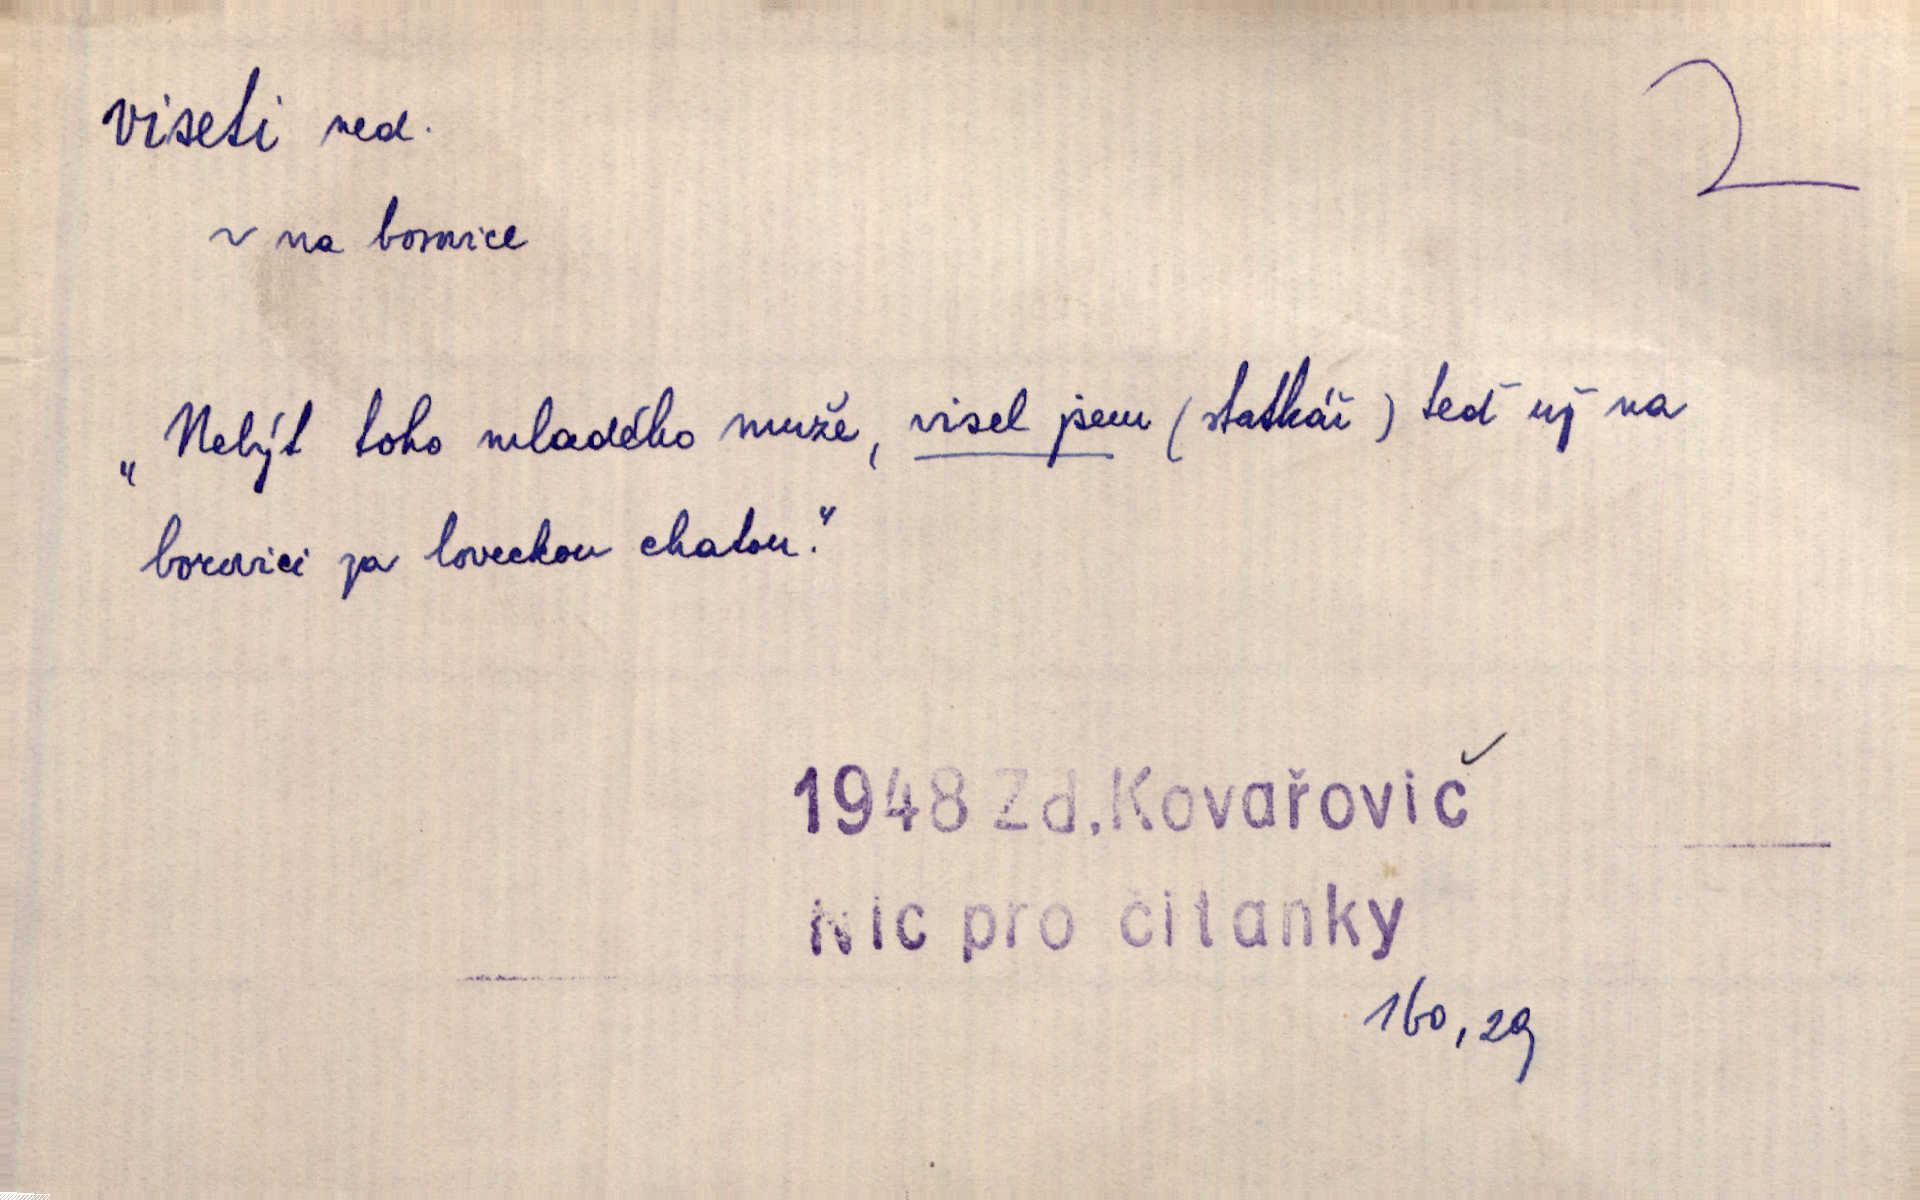 viseti ned.
2
~ na borovice
„Nebýt toho mladého muže, visel jsem (statkář) teď už na
borovici za loveckou chatou.“
1948 Zd. Kovařovič
Nic pro čitanky
160, 29